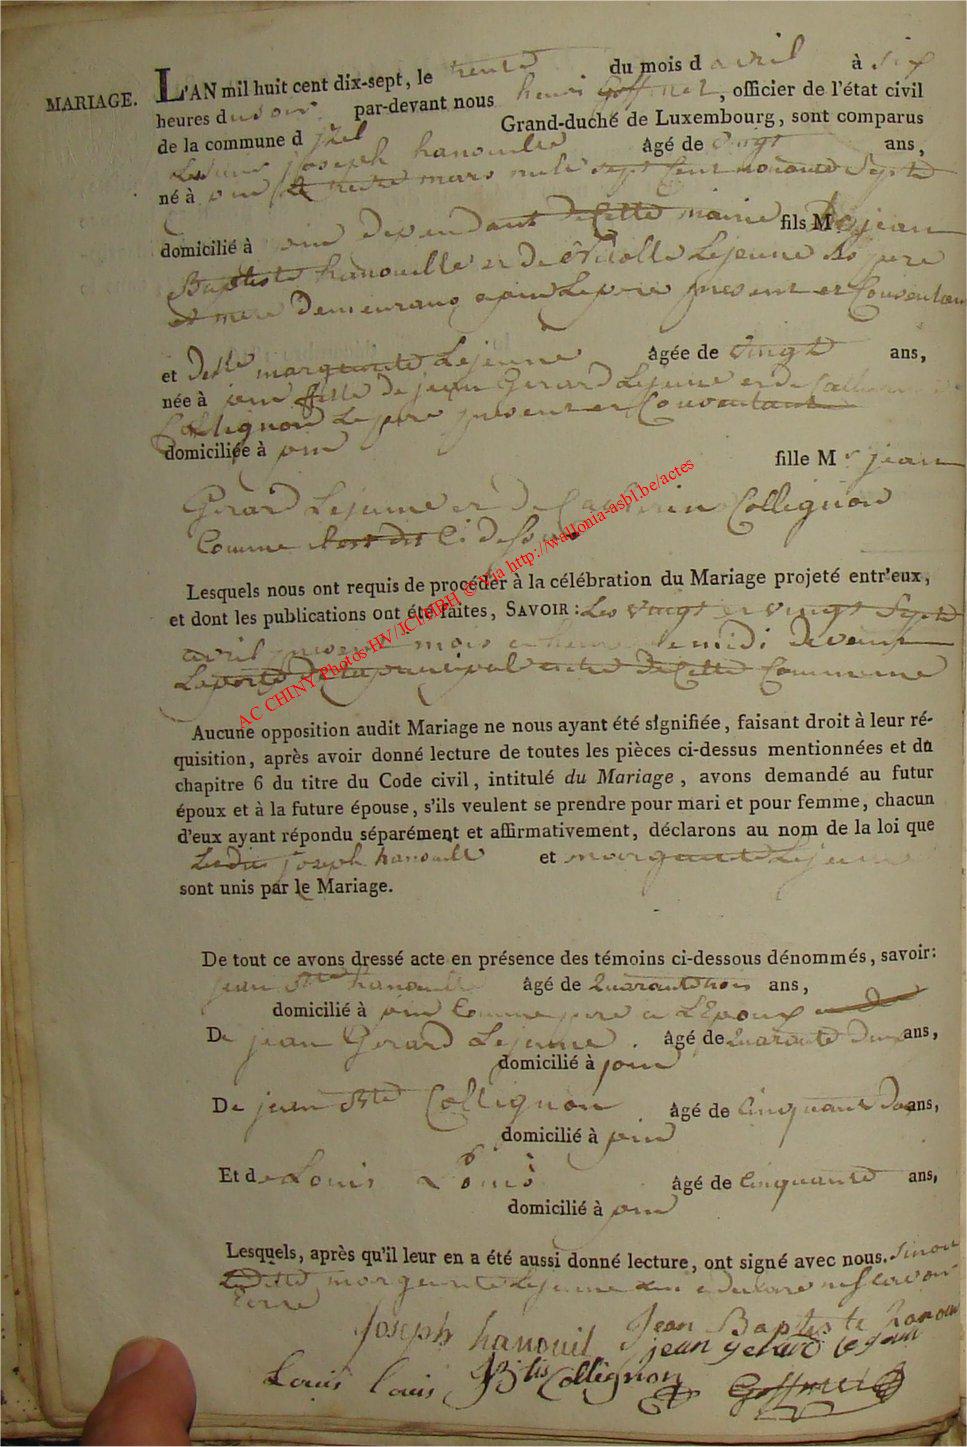 MARIAGE. L'AN mil huit cent dix-sept, le trente du mois d avril à six
heures du soir par-devant nous henri Goffinet, officier de l'état civil
de la commune d jzel Grand-duché de Luxembourg, sont comparus
joseph hanouille âgé de vingt ans,
né à le treize mars mille sept cent nonante septe
domicilié à dependant de Cette mairie fils M jean
Baptiste hanouille et de Lejeune
et mere Demeurans Le pere present et Consentant
et Delle marguerite Lejeune âgée de vingt ans,
née à fille de jean Gerard Lejeune et de
Collignon Le pere present et Consentant
domiciliée à fille Mr jean
Gerard Lejeune et de Collignon
Comme dit Ci dessus
Lesquels nous ont requis de procéder à la célébration du Mariage projeté entr'eux,
et dont les publications ont été faites, SAVOIR : Les vingt et vingt septe
avril mois midi devant
La porte principal entré de Cette Commune
AC CHINY Photos HV/JCI/MBH © Via http://wallonia-asbl.be/actes
Aucune opposition audit Mariage ne nous ayant été signifiée, faisant droit à leur ré-
quisition, après avoir donné lecture de toutes les pièces ci-dessus mentionnées et du
chapitre 6 du titre du Code civil, intitulé du Mariage, avons demandé au futur
époux et à la future épouse, s'ils veulent se prendre pour mari et pour femme, chacun
d'eux ayant répondu séparément et affirmativement, déclarons au nom de la loi que
Ledit joseph hanouille et marguerite Lejeune
sont unis par le Mariage.
De tout ce avons dressé acte en présence des témoins ci-dessous dénommés, savoir:
jean Bte hanouille âgé de Quarante trois ans,
domicilié à Comme pere a L'Epoux
De jean Gerard Lejeune. âgé de Quarante Deux ans,
domicilié à
De jean Bte Collignon âgé de Cinquante Deux ans,
domicilié à
Et de Louis Louis âgé de Cinquante ans,
domicilié à
Lesquels, après qu'il leur en a été aussi donné lecture, ont signé avec nous. Sinon
Ladite marguerite Lejeune a declaré ne scavoir
Ecrire
Joseph hanouil Jean Baptiste
jean gerard lejeun
Louis louis JBtis Collignon Goffinet